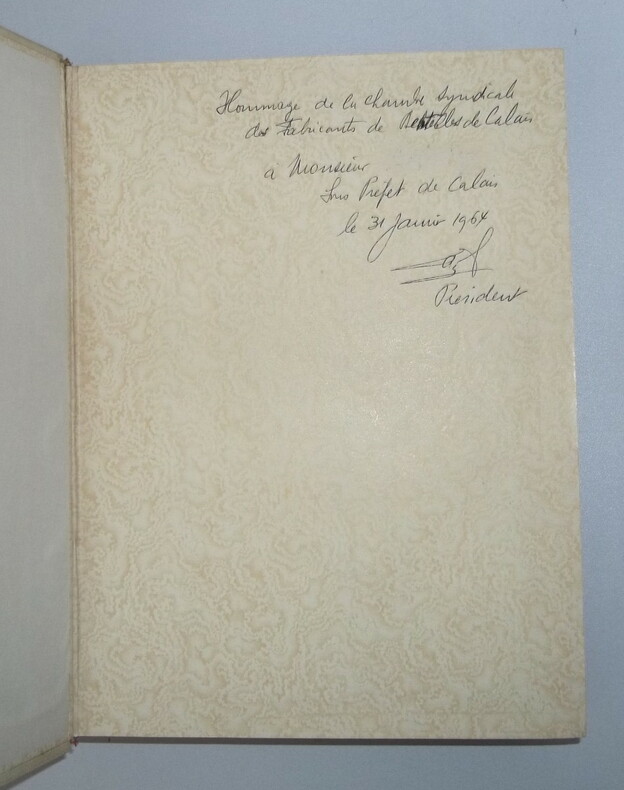 Hommage de la Chambre Syndicale
des Fabricants de Dentelles de Calais
a Monsieur
Sous Préfet de Calais
le 31 Janvier 1964
Président